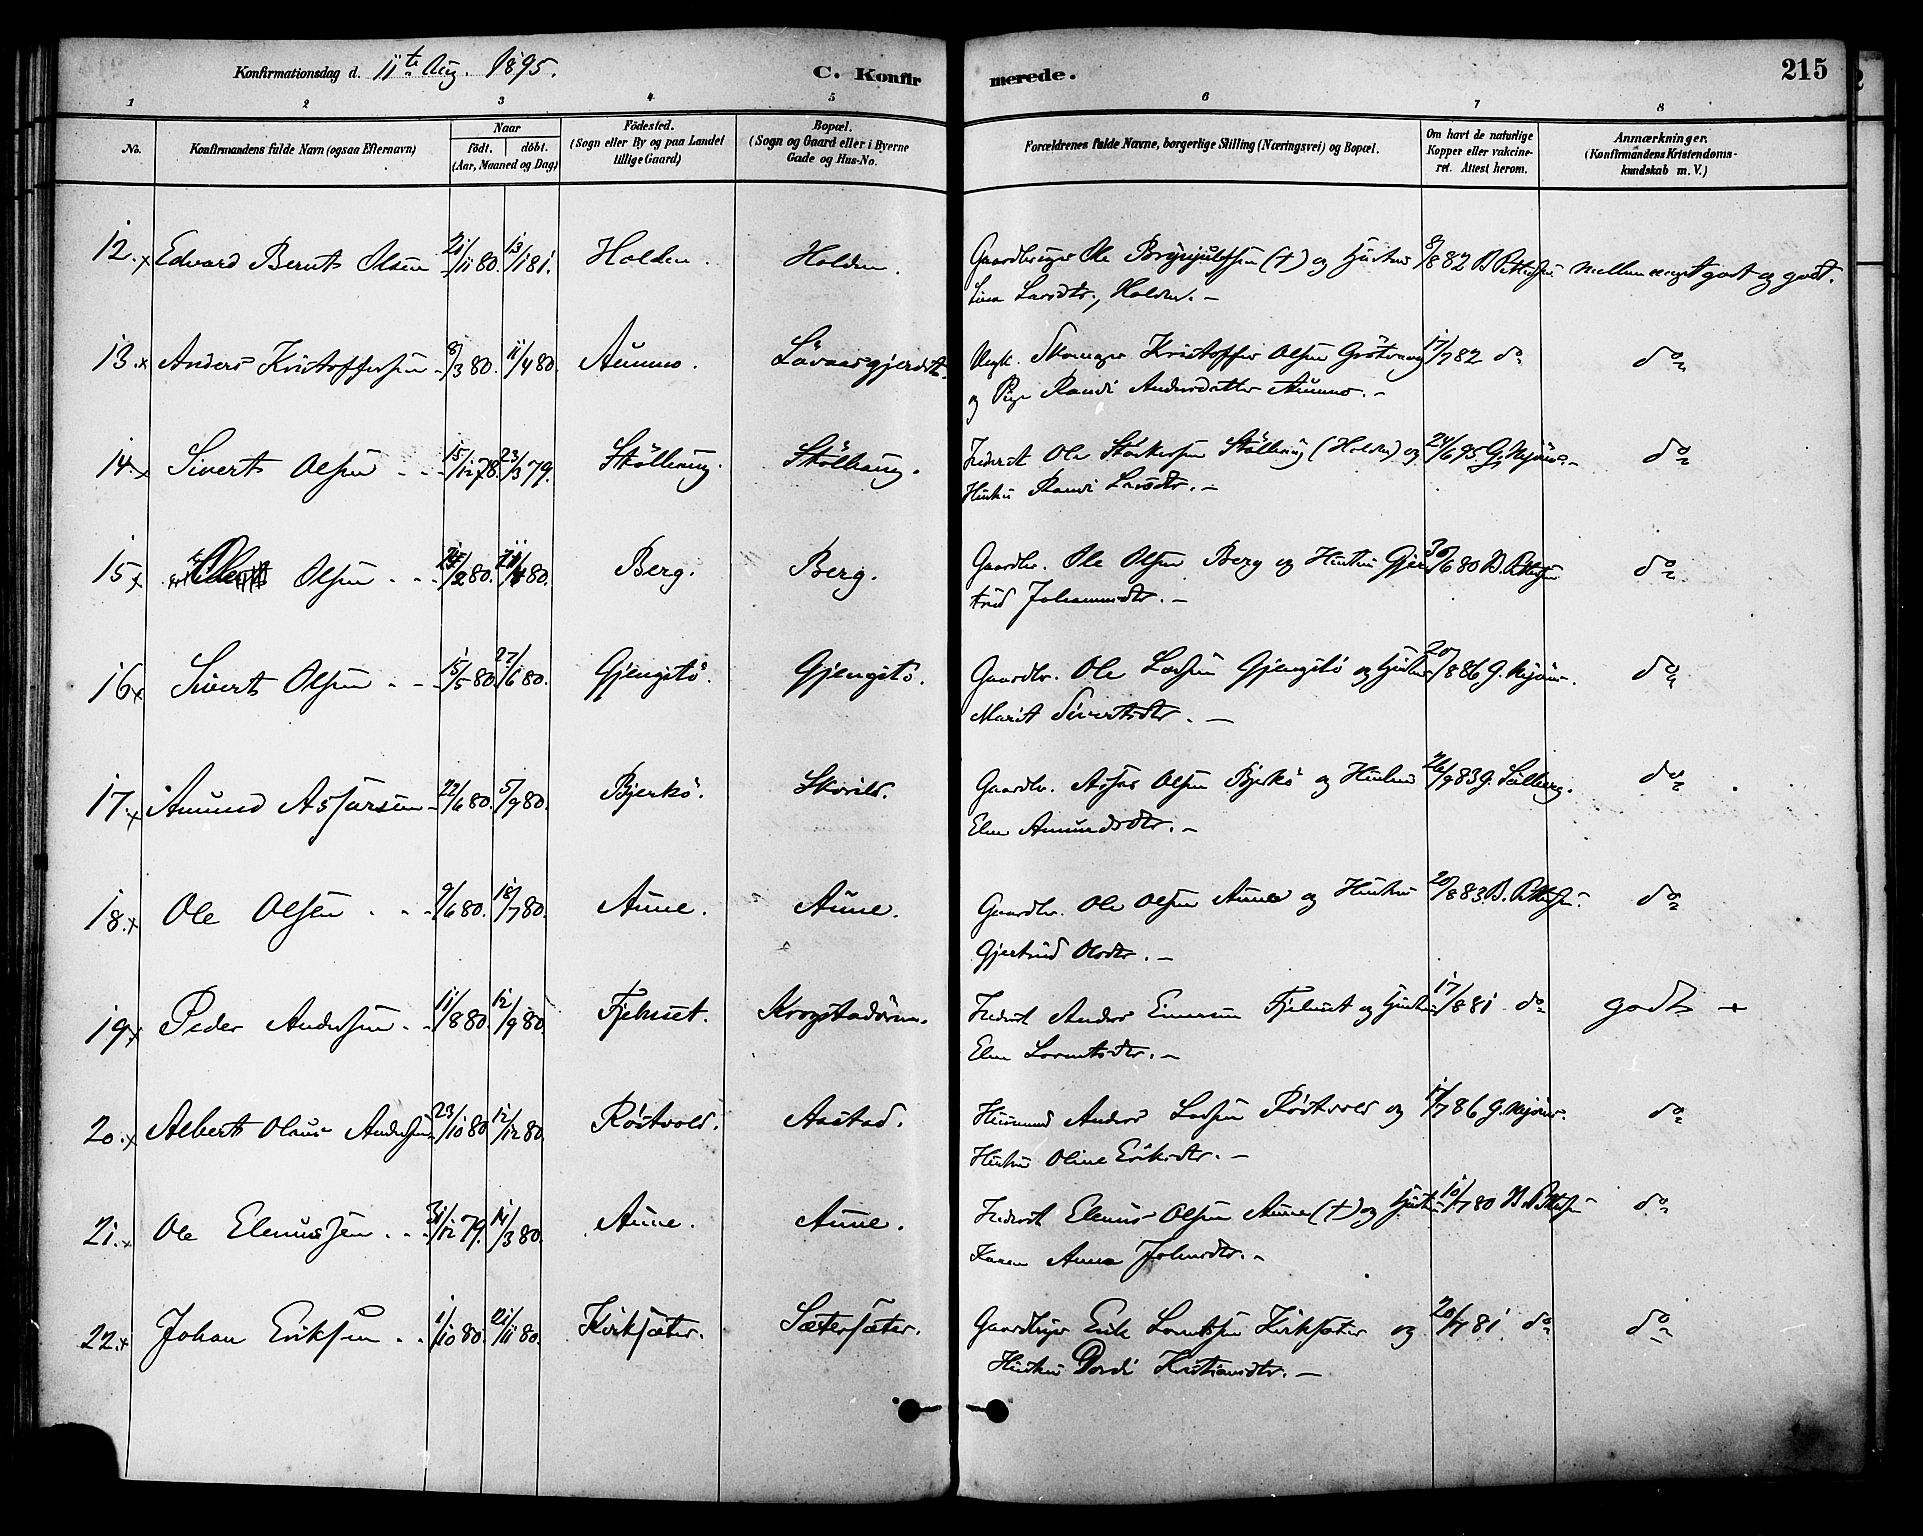 Konfirmationsdag d. 11te Aug. 1895.
C. Konfirmerede.
215
1 2 3 4 5 6 7 8
No.
Konfirmandens fulde Navn (ogsaa Efternavn)
Naar
födt. döbt.
(Aar, Maaned og Dag)
Födested.
(Sogn eller By og paa Landet
tillige Gaard)
Bopæl.
(Sogn og Gaard eller i Byerne
Gade og Hus-No.
Forældrenes fulde Navne, borgerlige Stilling (Næringsvei) og Bopæl.
Om havt de naturlige
Kopper eller vakcine-
ret. Attest herom.
Anmærkninger.
(Konfirmandens Kristendoms-
kundskab m. V.)
12. x Edvard Bernt Olsen 21/11 80. 13/1 81. Holden. Holden. Gaardbruger Ole (†) og Hustru 8/8 82 B. Pettersen mellem meget godt og godt.
Lina Larsdtr., Holden. —
13. x Anders Kristoffersen - 8/3 80. 11/4 80. Aunmo. Lövaasgjerdet. Ungk. Skomager Kristoffer Olsen 17/7 82 do do
og Pige Randi Andersdatter Aunmo. -
14. x Sivert Olsen - - 15/12 78. 23/3 79. Stölhaug. Stölhaug. Inderst Ole Stölhaug (Holden) og 24/6 95. G. do
Hustru Randi Larsdtr. —
15 x Olsen . . 80. 80. Berg. Berg. Gaardbr. Ole Olsen Berg og Hustru Gjer- 30/6 80 B. Pettersen do
trud Johannesdtr. —
16 x Sivert Olsen . - - 15/5 80. 27/6 80. Gjengstö. Gjengstö. Gaardbr. Ole Larsen Gjengstö og Hustru 20/8 86 G. do
Marit Sivertsdtr. —
17. x Amund Assarsen - 22/6 80. 5/9 80. Bjerkö. Skorild. Gaardbr. Assar Olsen Bjerkö og Hustru 26/9 83 G. Sölberg. do
Elen Amundsdtr. —
18. x Ole Olsen . . - 9/6 80. 18/7 80. Aune. Aune. Gaardbr. Ole Olsen Aune og Hustru 20/8 83. B. Pettersen. do
Gjertrud Olsdtr. —
19 x Peder Andersen . - 11/8 80. 12/9 80. Fjehuset. Krogstadören. Inderst Anders Einersen Fjehuset og Hustru 17/8 81 do godt +
Elen Lorentsdtr. —
20. x Albert Olaus Andersen 23/10 80 12/12 80. Röstvold. Aastad. Husmand Anders Larsen Röstvold og 11/7 86 G. do
Hustru Oline Eriksdtr. —
21. x Ole Elenussen . . . 31/12 79. 14/3 80. Aune. Aune. Inderst Elenus Olsen Aune (†) og Hustru 10/7 80 B. Pettersen do
Karen Anna Johnsdtr. —
22. x Johan Eriksen . . 1/10 80. 21/11 80. Kirksæter. Sætersæter. Gaardbruger Erik Lorentsen Kirksæter og 20/7 81. do do
Hustru Dordi Kristiansdtr. —